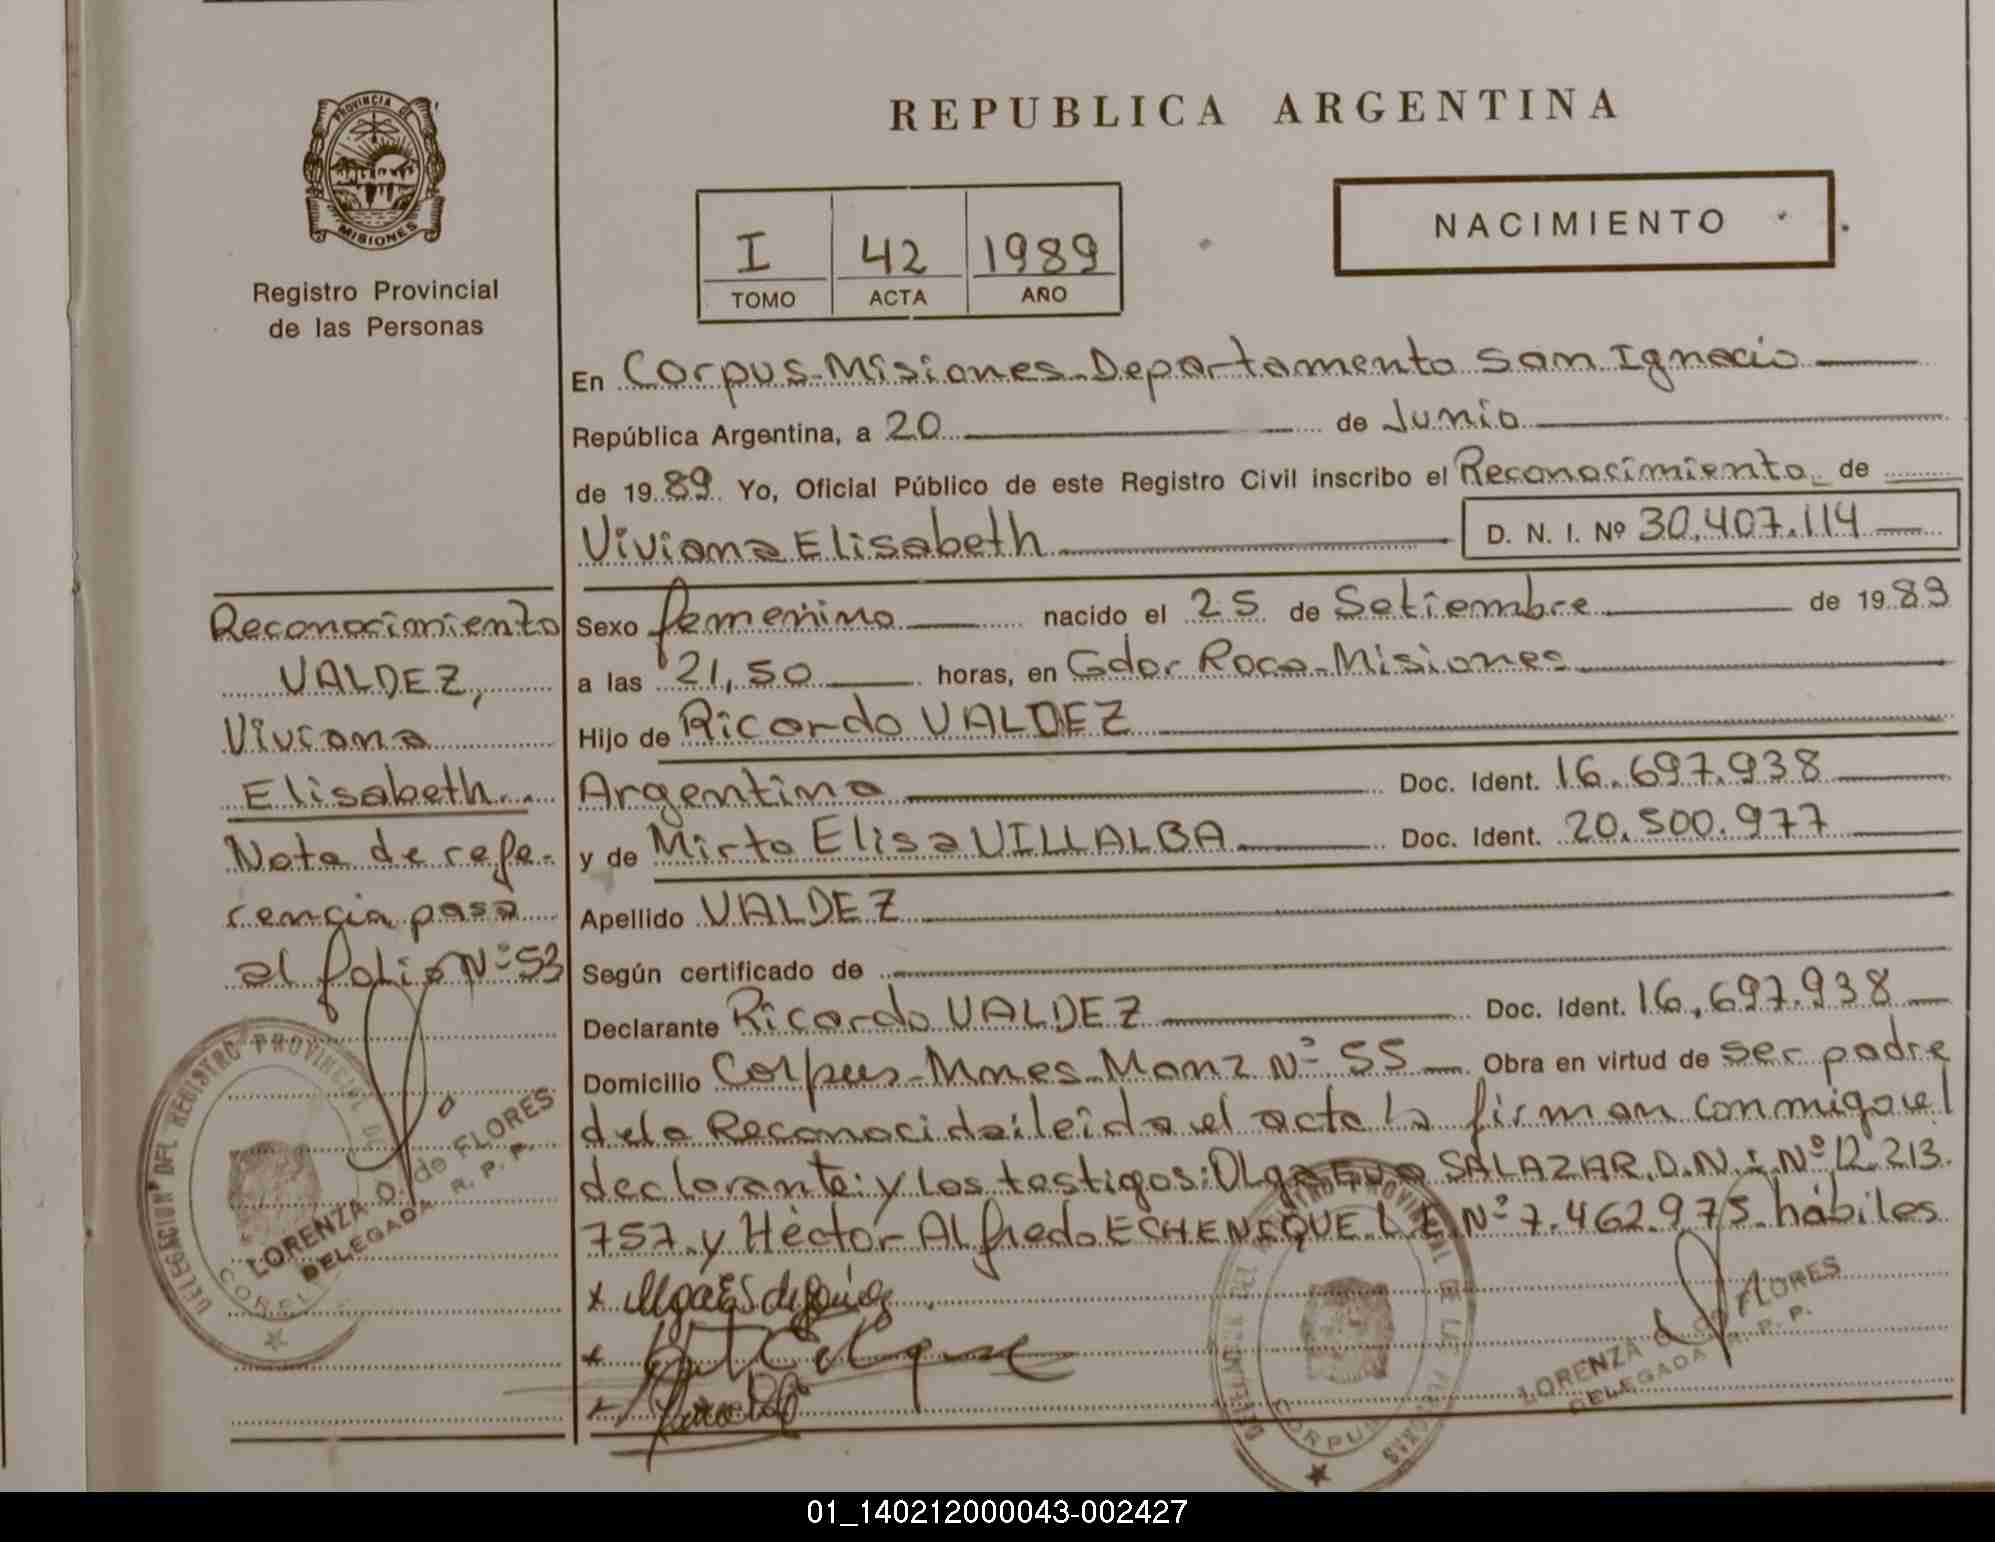 PROVINCIA DE
MISIONES
Registro Provincial
de las Personas
REPUBLICA ARGENTINA
I 42 1989
TOMO ACTA AÑO
NACIMIENTO
En Corpus-Misiones-Departamento San Ignacio
República Argentina, a 20 de Junio
de 1989 Yo, Oficial Público de este Registro Civil inscribo el Reconocimiento de
Viviana Elisabeth D. N. I. Nº 30.407.114
Sexo femenino nacido el 25 de Setiembre de 1983
a las 21,50 horas, en Gdor Roca-Misiones
Hijo de Ricardo VALDEZ
Argentino Doc. Ident. 16.697.938
y de Mirta Elisa VILLALBA Doc. Ident. 20.500.977
Apellido VALDEZ
Según certificado de
Declarante Ricardo VALDEZ Doc. Ident. 16.697.938
Domicilio Corpus-Mnes-Manz Nº 55 Obra en virtud de ser padre
de la Reconocida; leída el acta la firman conmigo; el
declarante; y los testigos: Olga SALAZAR. D.N.I Nº 12.213.
757. y Héctor Alfredo ECHENIQUE L.E Nº 7.462.975. hábiles
Reconocimiento
VALDEZ,
Viviana
Elisabeth
Nota de refe-
rencia pasa
al folio Nº 53
DELEGACION DEL REGISTRO PROVINCIAL DE
LORENZA O. de FLORES
DELEGADA R. P. P.
PROVINCIAL DE LAS PERSONAS
CORPUS
LORENZA O. FLORES
DELEGADA R. P. P.
01_140212000043-002427